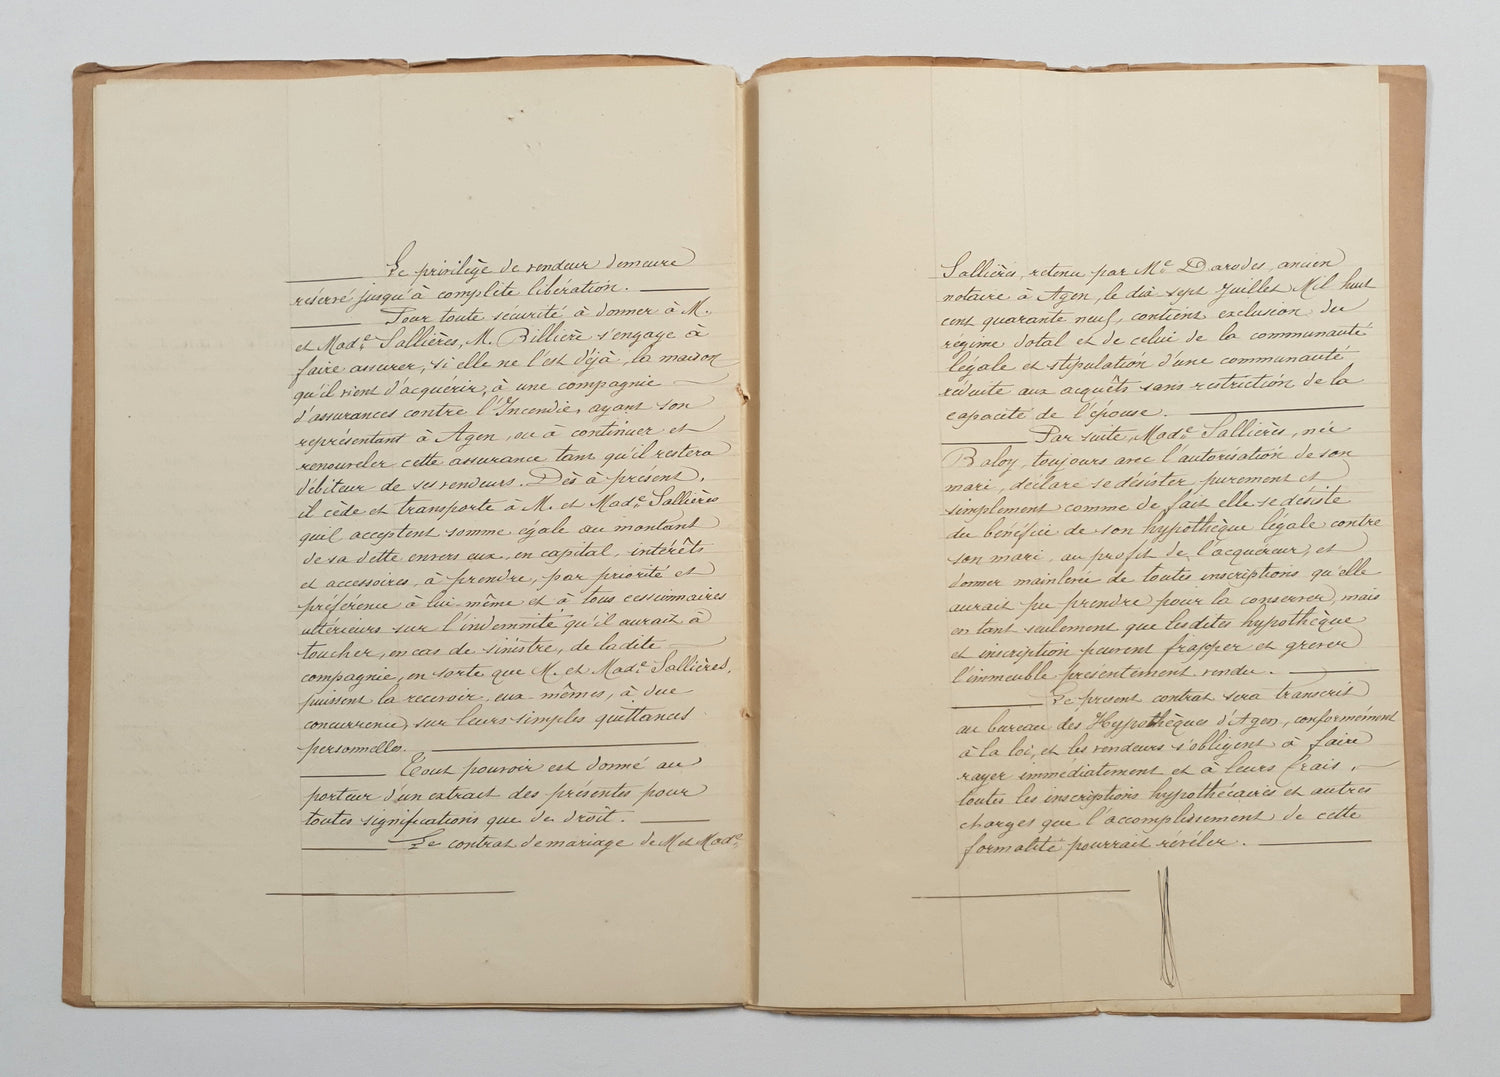 Le privilège de vendeur demeure
réservé jusqu'à complète libération.
Pour toute sécurité à donner à M.
et Made Sallières, M. Billière s'engage à
faire assurer, si elle ne l'est déjà, la maison
qu'il vient d'acquérir, à une compagnie
d'assurances contre l'Incendie, ayant son
représentant à Agen, ou à continuer et
renouveler cette assurance tant qu'il restera
débiteur de ses vendeurs. Dès à présent,
il cède et transporte à M. et Made Sallières
qui l'acceptent somme égale au montant
de sa dette envers eux, en capital, intérêts
et accessoires, à prendre, par priorité et
préférence à lui-même et à tous cessionnaires
ultérieurs sur l'indemnité qu'il aurait à
toucher, en cas de sinistre, de ladite
compagnie, en sorte que M. et Made Sallières,
puissent la recevoir eux mêmes, à due
concurrence, sur leurs simples quittances
personnelles.
Tout pouvoir est donné au
porteur d'un extrait des présentes pour
toutes significations que de droit.
Le contrat de mariage de M et Made
Sallières, retenu par Me Darodes, ancien
notaire à Agen, le dix sept Juillet Mil huit
cent quarante neuf, contient exclusion du
régime dotal et de celui de la communauté
légale et stipulation d'une communauté
réduite aux acquêts sans restriction de la
capacité de l'épouse.
Par suite, Made Sallières, née
Baloy, toujours avec l'autorisation de son
mari, déclare se désister purement et
simplement comme de fait elle se désiste
du bénéfice de son hypothèque légale contre
son mari, au profit de l'acquéreur, et
donner mainlevée de toutes inscriptions qu'elle
aurait pu prendre pour la conserver, mais
en tant seulement que lesdites hypothèque
et inscription peuvent frapper et grever
l'immeuble présentement vendu.
Le présent contrat sera transcrit
au bureau des Hypothèques d'Agen, conformément
à la loi, et les vendeurs s'obligent à faire
rayer immédiatement et à leurs frais,
toutes les inscriptions hypothécaires et autres
charges que l'accomplissement de cette
formalité pourrait révéler.